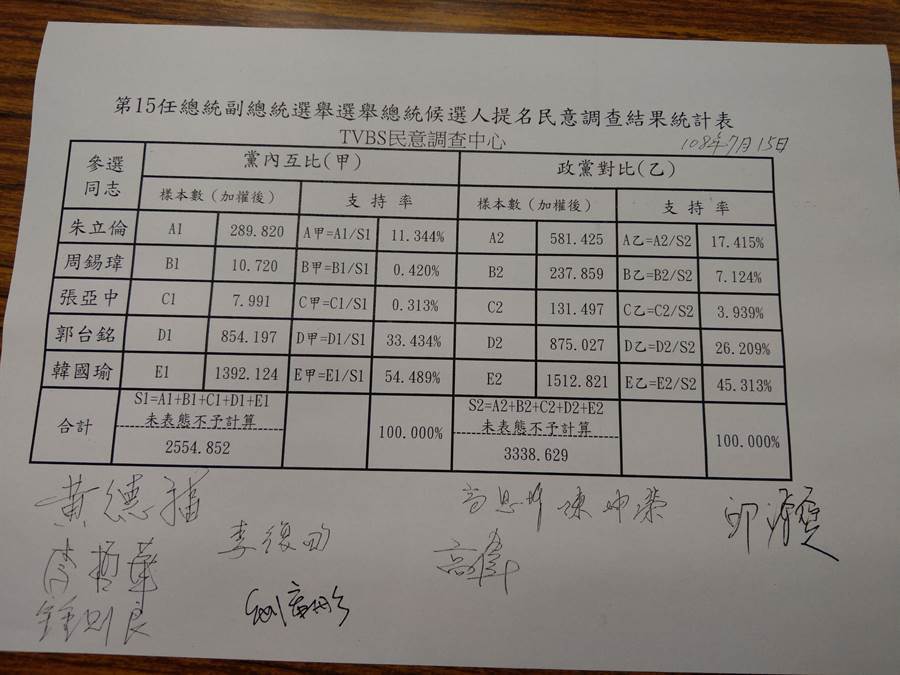 第15任總統副總統選舉選舉總統候選人提名民意調查結果統計表
TVBS民意調查中心 108年7月15日
參選同志 黨內互比(甲) 政黨對比(乙)
樣本數(加權後) 支持率 樣本數(加權後) 支持率
朱立倫 A1 289.820 A甲=A1/S1 11.344% A2 581.425 A乙=A2/S2 17.415%
周錫瑋 B1 10.720 B甲=B1/S1 0.420% B2 237.859 B乙=B2/S2 7.124%
張亞中 C1 7.991 C甲=C1/S1 0.313% C2 131.497 C乙=C2/S2 3.939%
郭台銘 D1 854.197 D甲=D1/S1 33.434% D2 875.027 D乙=D2/S2 26.209%
韓國瑜 E1 1392.124 E甲=E1/S1 54.489% E2 1512.821 E乙=E2/S2 45.313%
合計 S1=A1+B1+C1+D1+E1 S2=A2+B2+C2+D2+E2
未表態不予計算 未表態不予計算
2554.852 100.000% 3338.629 100.000%
黃德福
李哲華 李復甸
鍾則良